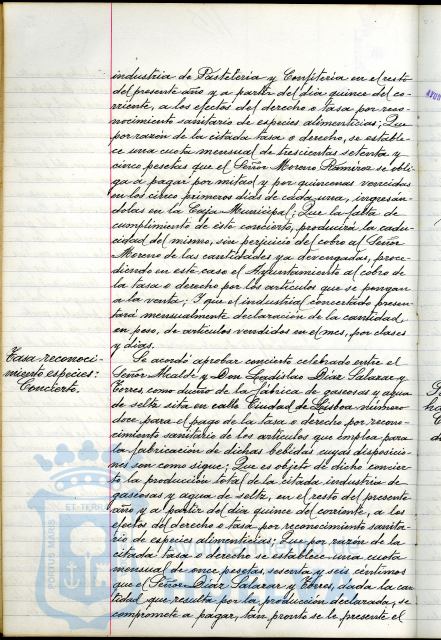 industria de Pastelería y Confitería en el resto
del presente año y a partir del dia quince del co-
rriente, a los efectos del derecho o tasa por reco-
nocimiento sanitario de especies alimenticias; Que
por razón de la citada tasa o derecho, se estable-
ce una cuota mensual de trescientas setenta y
cinco pesetas que el Señor Moreno Ramírez se obli-
ga a pagar por mitad y por quincenas vencidas
en los cinco primeros dias de cada una, ingresán-
dolas en la Caja Municipal; Que la falta de
cumplimiento de este concierto, producirá la cadu-
cidad del mismo, sin perjuicio del cobro al Señor
Moreno de las cantidades ya devengadas, proce-
diendo en este caso el Ayuntamiento al cobro de
la tasa o derecho por los artículos que se pongan
a la venta; Y que el industrial concertado presen-
tará mensualmente declaración de la cantidad
en peso, de artículos vendidos en el mes, por clases
y dias.
Tasa reconoci-
miento especies:
Concierto.
Se acordó aprobar concierto celebrado entre el
Señor Alcalde y Don Ladislao Díaz Salazar y
Torres como dueño de la fábrica de gaseosas y agua
de seltz sita en calle Ciudad de Lisboa número
doce para el pago de la tasa o derecho por recono-
cimiento sanitario de los artículos que implea para
la fabricación de dichas bebidas cuyas disposicio-
nes son como sigue; Que es objeto de dicho concier-
to la producción total de la citada industria de
gaseosas y agua de seltz, en el resto del presente
año y a partir del dia quince del corriente, a los
efectos del derecho o tasa por reconocimiento sanita-
rio de especies alimenticias; Que por razón de la
citada tasa o derecho se establece una cuota
mensual de once pesetas, sesenta y seis céntimos
que el Señor Díaz Salazar y Torres, dada la can-
tidad que resulta por la producción declarada, se
compromete a pagar, tan pronto se le presente el
PORTUS MARIS
ET TERR